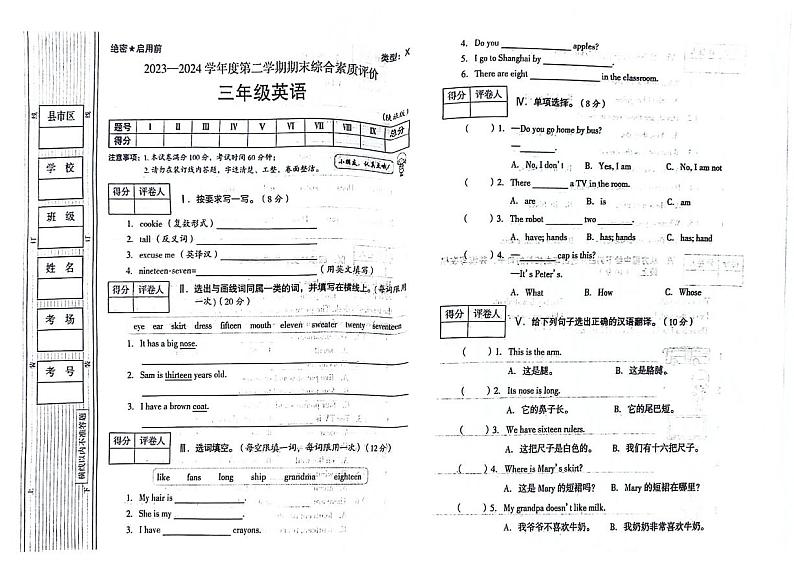 绝密★启用前
类型：X
2023—2024学年度第二学期期末综合素质评价
三年级英语
题号 Ⅰ Ⅱ Ⅲ Ⅳ Ⅴ Ⅵ Ⅶ Ⅷ Ⅸ 总分
得分
注意事项：1.本试卷满分100分，考试时间60分钟；
2.请勿在装订线内答题，字迹清楚、工整，卷面整洁。
小朋友，认真点哦！
县市区
学 校
班 级
姓 名
考 场
考 号
横线以内不准答题
得分 评卷人
Ⅰ. 按要求写一写。（8分）
1. cookie（复数形式）
2. tall（反义词）
3. excuse me（英译汉）
4. nineteen-seven= （用英文填写）
得分 评卷人
Ⅱ. 选出与画线词同属一类的词，并填写在横线上。（每词限用
一次）（20分）
eye ear skirt dress fifteen mouth eleven sweater twenty seventeen
1. It has a big nose.
2. Sam is thirteen years old.
3. I have a brown coat.
得分 评卷人
Ⅲ. 选词填空。（每空限填一词，每词限用一次）（12分）
like fans long ship grandma eighteen
1. My hair is ______.
2. She is my ______.
3. I have ______ crayons.
4. Do you ______ apples?
5. I go to Shanghai by ______.
6. There are eight ______ in the classroom.
得分 评卷人
Ⅳ. 单项选择。（8分）
( ) 1. —Do you go home by bus?
—______.
A. No, I don't B. Yes, I am C. No, I am not
( ) 2. There ______ a TV in the room.
A. are B. is C. am
( ) 3. The robot ______ two ______.
A. have; hands B. has; hands C. has; hand
( ) 4. —______ cap is this?
—It's Peter's.
A. What B. How C. Whose
得分 评卷人
Ⅴ. 给下列句子选出正确的汉语翻译。（10分）
( ) 1. This is the arm.
A. 这是腿。 B. 这是胳膊。
( ) 2. Its nose is long.
A. 它的鼻子长。 B. 它的尾巴短。
( ) 3. We have sixteen rulers.
A. 这把尺子是白色的。 B. 我们有十六把尺子。
( ) 4. Where is Mary's skirt?
A. 这是Mary的短裙吗？ B. Mary的短裙在哪里？
( ) 5. My grandpa doesn't like milk.
A. 我爷爷不喜欢牛奶。 B. 我奶奶非常喜欢牛奶。